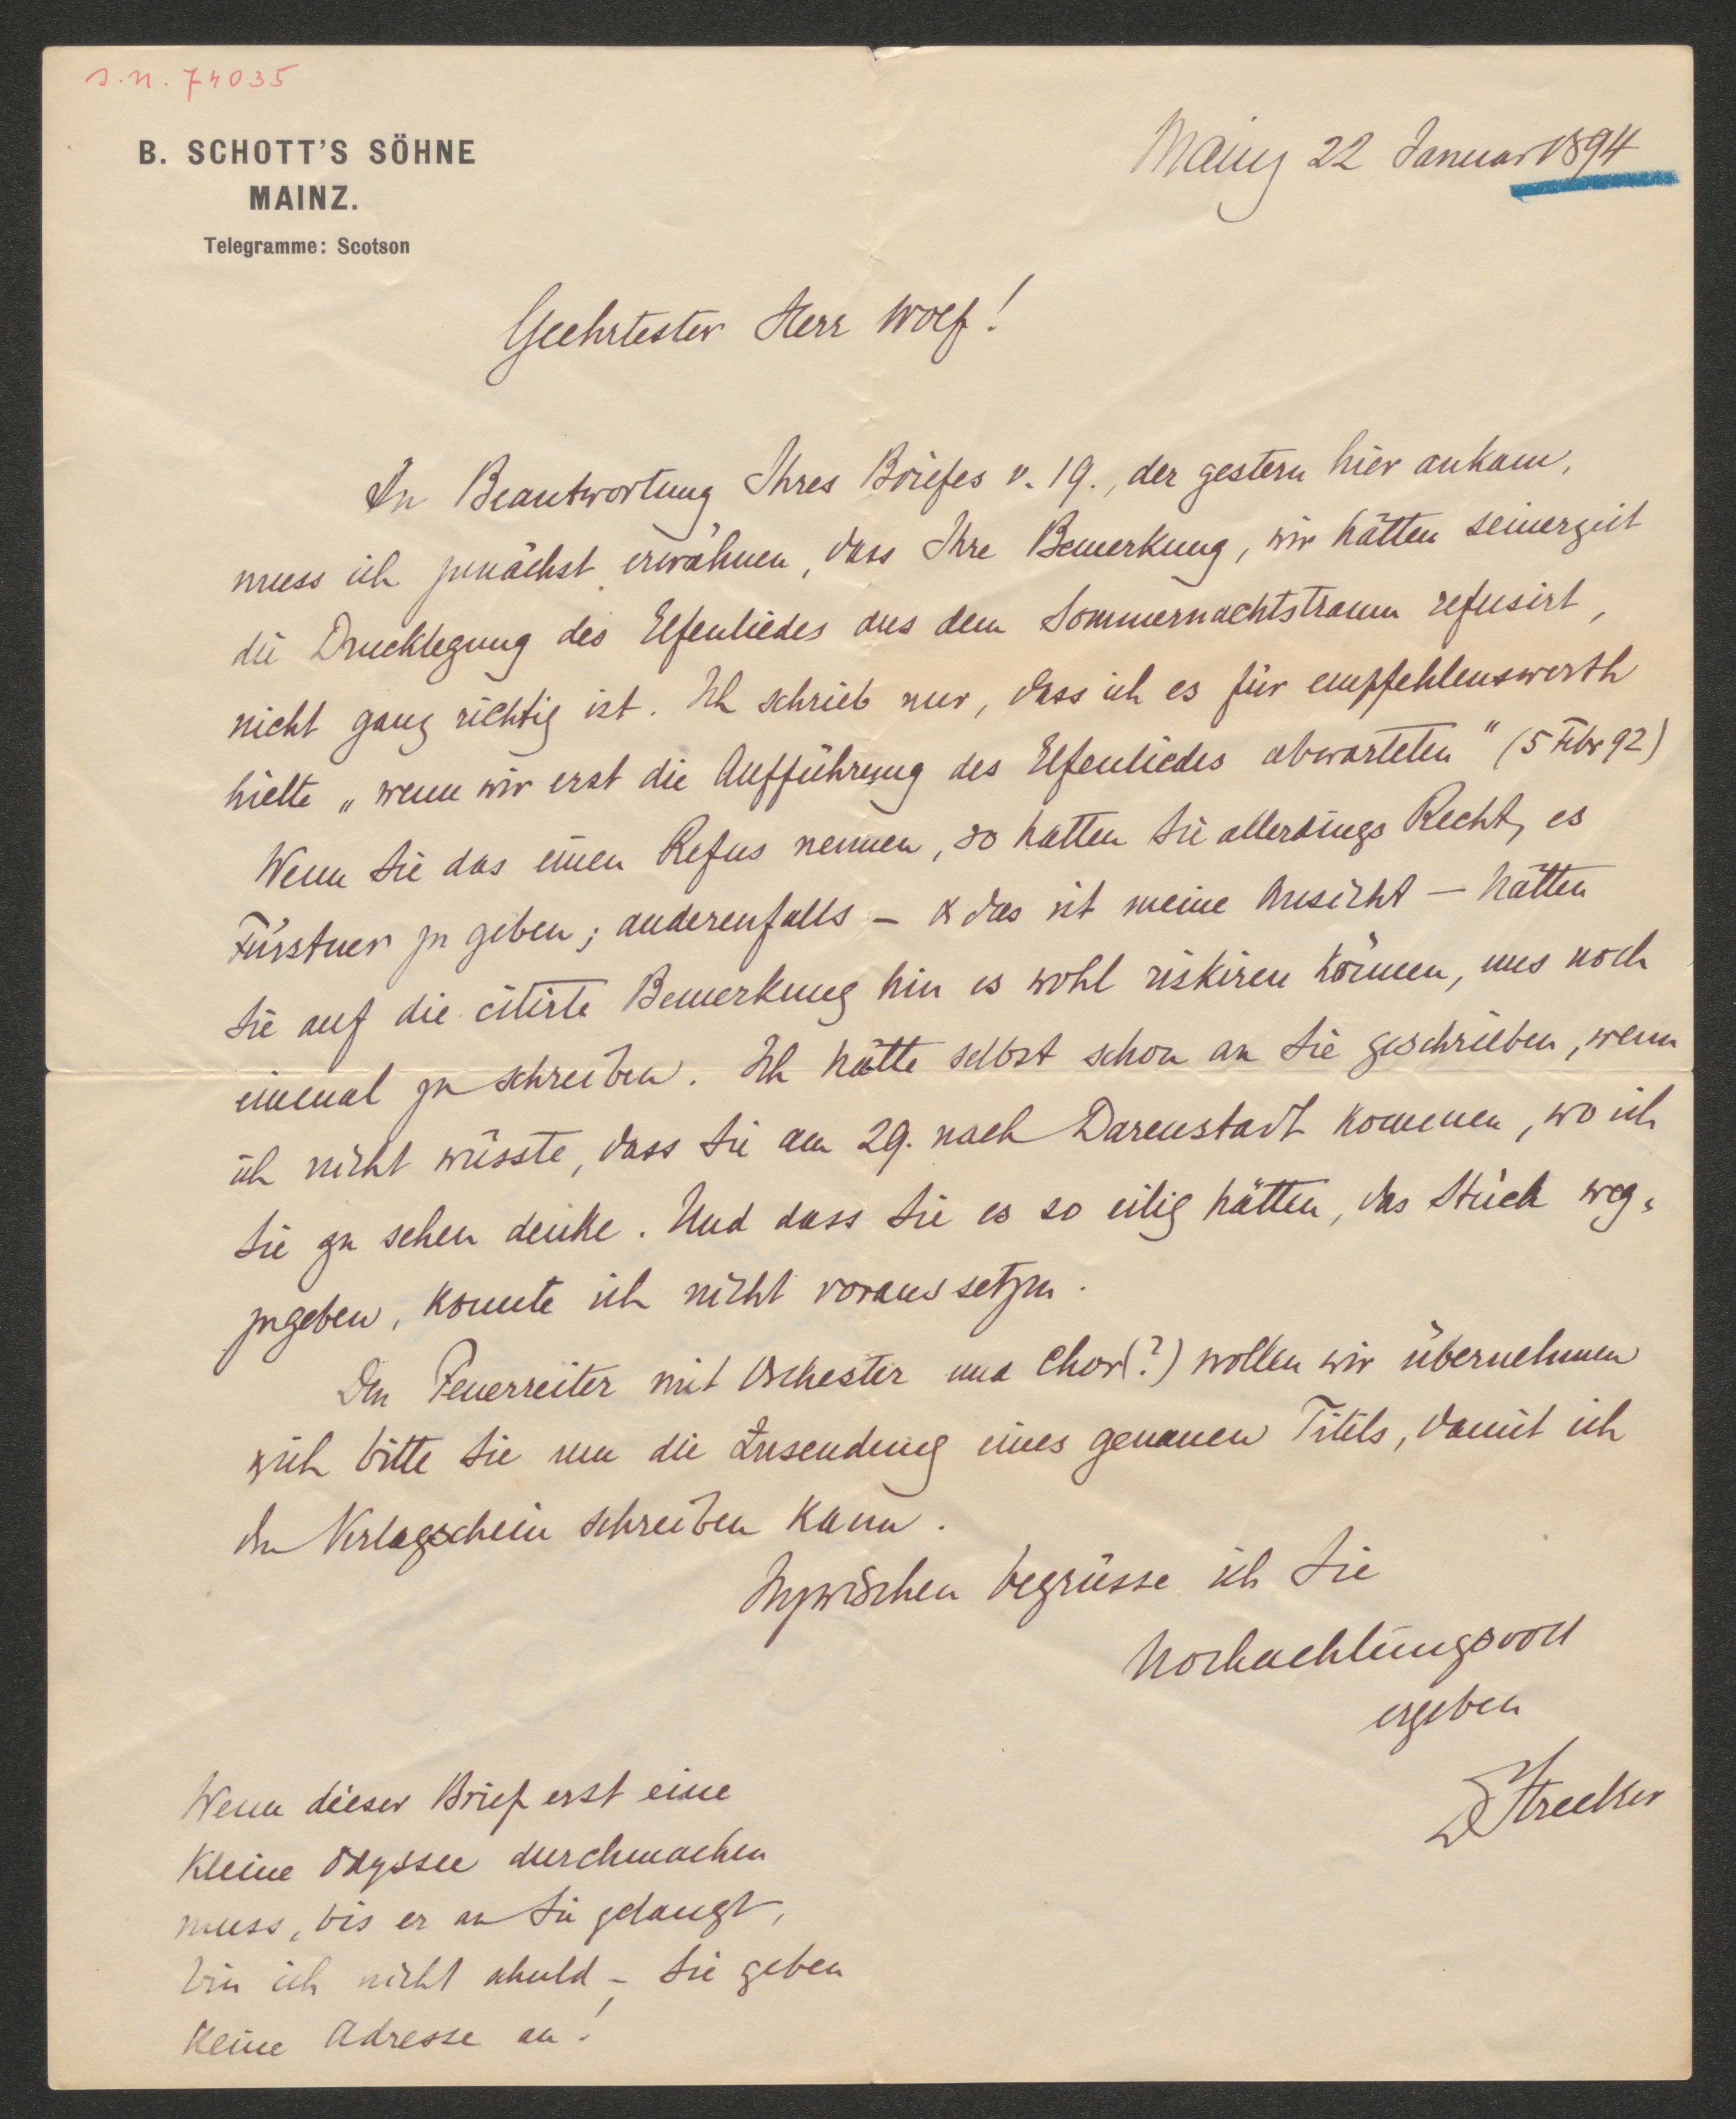 s.n. 74035
B. SCHOTT'S SÖHNE
MAINZ.
Telegramme: Scotson
Mainz 22 Januar 1894
Geehrtester Herr Wolf!
In Beantwortung Ihres Briefes v. 19., der gestern hier ankam,
muss ich zunächst erwähnen, dass Ihre Bemerkung, wir hätten seinerzeit
die Drucklegung des Elfenliedes aus dem Sommernachtstraum refusirt,
nicht ganz richtig ist. Ich schrieb nur, dass ich es für empfehlenswerth
hielte „wenn wir erst die Aufführung des Elfenliedes abwarteten" (5 Febr 92)
Wenn Sie das einen Refus nennen, so hatten Sie allerdings Recht, es
Fürstner zu geben; anderenfalls – & das ist meine Ansicht – hätten
Sie auf die citirte Bemerkung hin es wohl riskiren können, uns noch
einmal zu schreiben. Ich hätte selbst schon an Sie geschrieben, wenn
ich nicht wüsste, dass Sie am 29. nach Darmstadt kommen, wo ich
Sie zu sehen denke. Und dass Sie es so eilig hätten, das Stück weg-
zugeben, konnte ich nicht voraussetzen.
Den Feuerreiter mit Orchester und Chor(?) wollen wir übernehmen
& ich bitte Sie um die Zusendung eines genauen Titels, damit ich
den Verlagschein schreiben kann.
Inzwischen begrüsse ich Sie
hochachtungsvoll
ergeben
Strecker
Wenn dieser Brief erst eine
kleine Odyssee durchmachen
muss, bis er an Sie gelangt,
bin ich nicht schuld – Sie geben
keine Adresse an!